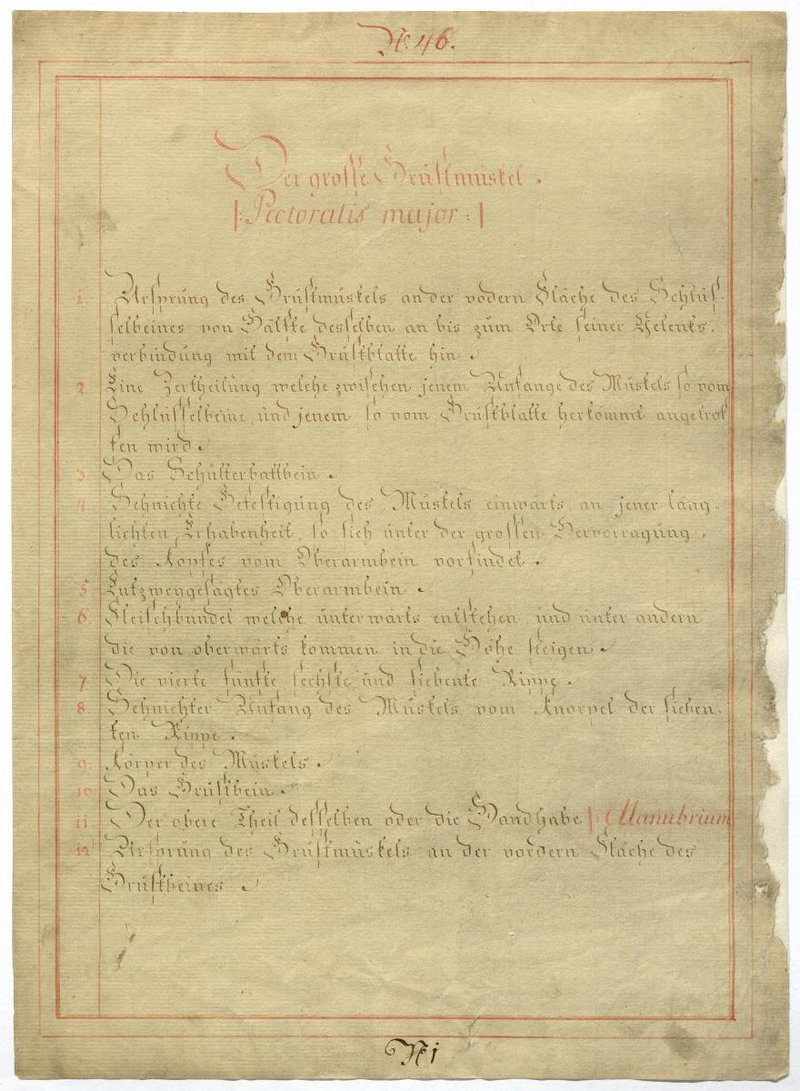 N: 46.
Der grosse Brustmuskel.
|: Pectoralis major :|
1. Ursprung des Brustmuskels an der vodern Fläche des Schlüs-
selbeines von Hälfte desselben an bis zum Orte seiner Gelenks-
verbindung mit dem Brustblatte hin.
2. Eine Zertheilung welche zwischen jenem Anfange des Muskels so vom
Schlüsselbeine, und jenem so vom Brustblatte herkommt angetrof
fen wird.
3. Das Schulterbattbein.
4. Sehnichte Befestigung des Muskels einwärts an jener läng-
lichten Erhabenheit, so sich unter der grossen Hervorragung,
des Kopfes vom Oberarmbein vorfindet.
5. Entzweygesägtes Oberarmbein.
6. Fleischbündel welche unterwärts entstehen und unter andern
die von oberwärts kommen in die Höhe steigen.
7. Die vierte fünfte sechste und siebente Rippe.
8. Sehnichter Anfang des Muskels vom Knorpel der sieben-
ten Rippe.
9. Körper des Muskels.
10. Das Brustbein.
11. Der obere Theil desselben oder die Handhabe |: Manubrium
12. Ursprung des Brustmuskels an der vordern Fläche des
Brustbeines.
N: 1